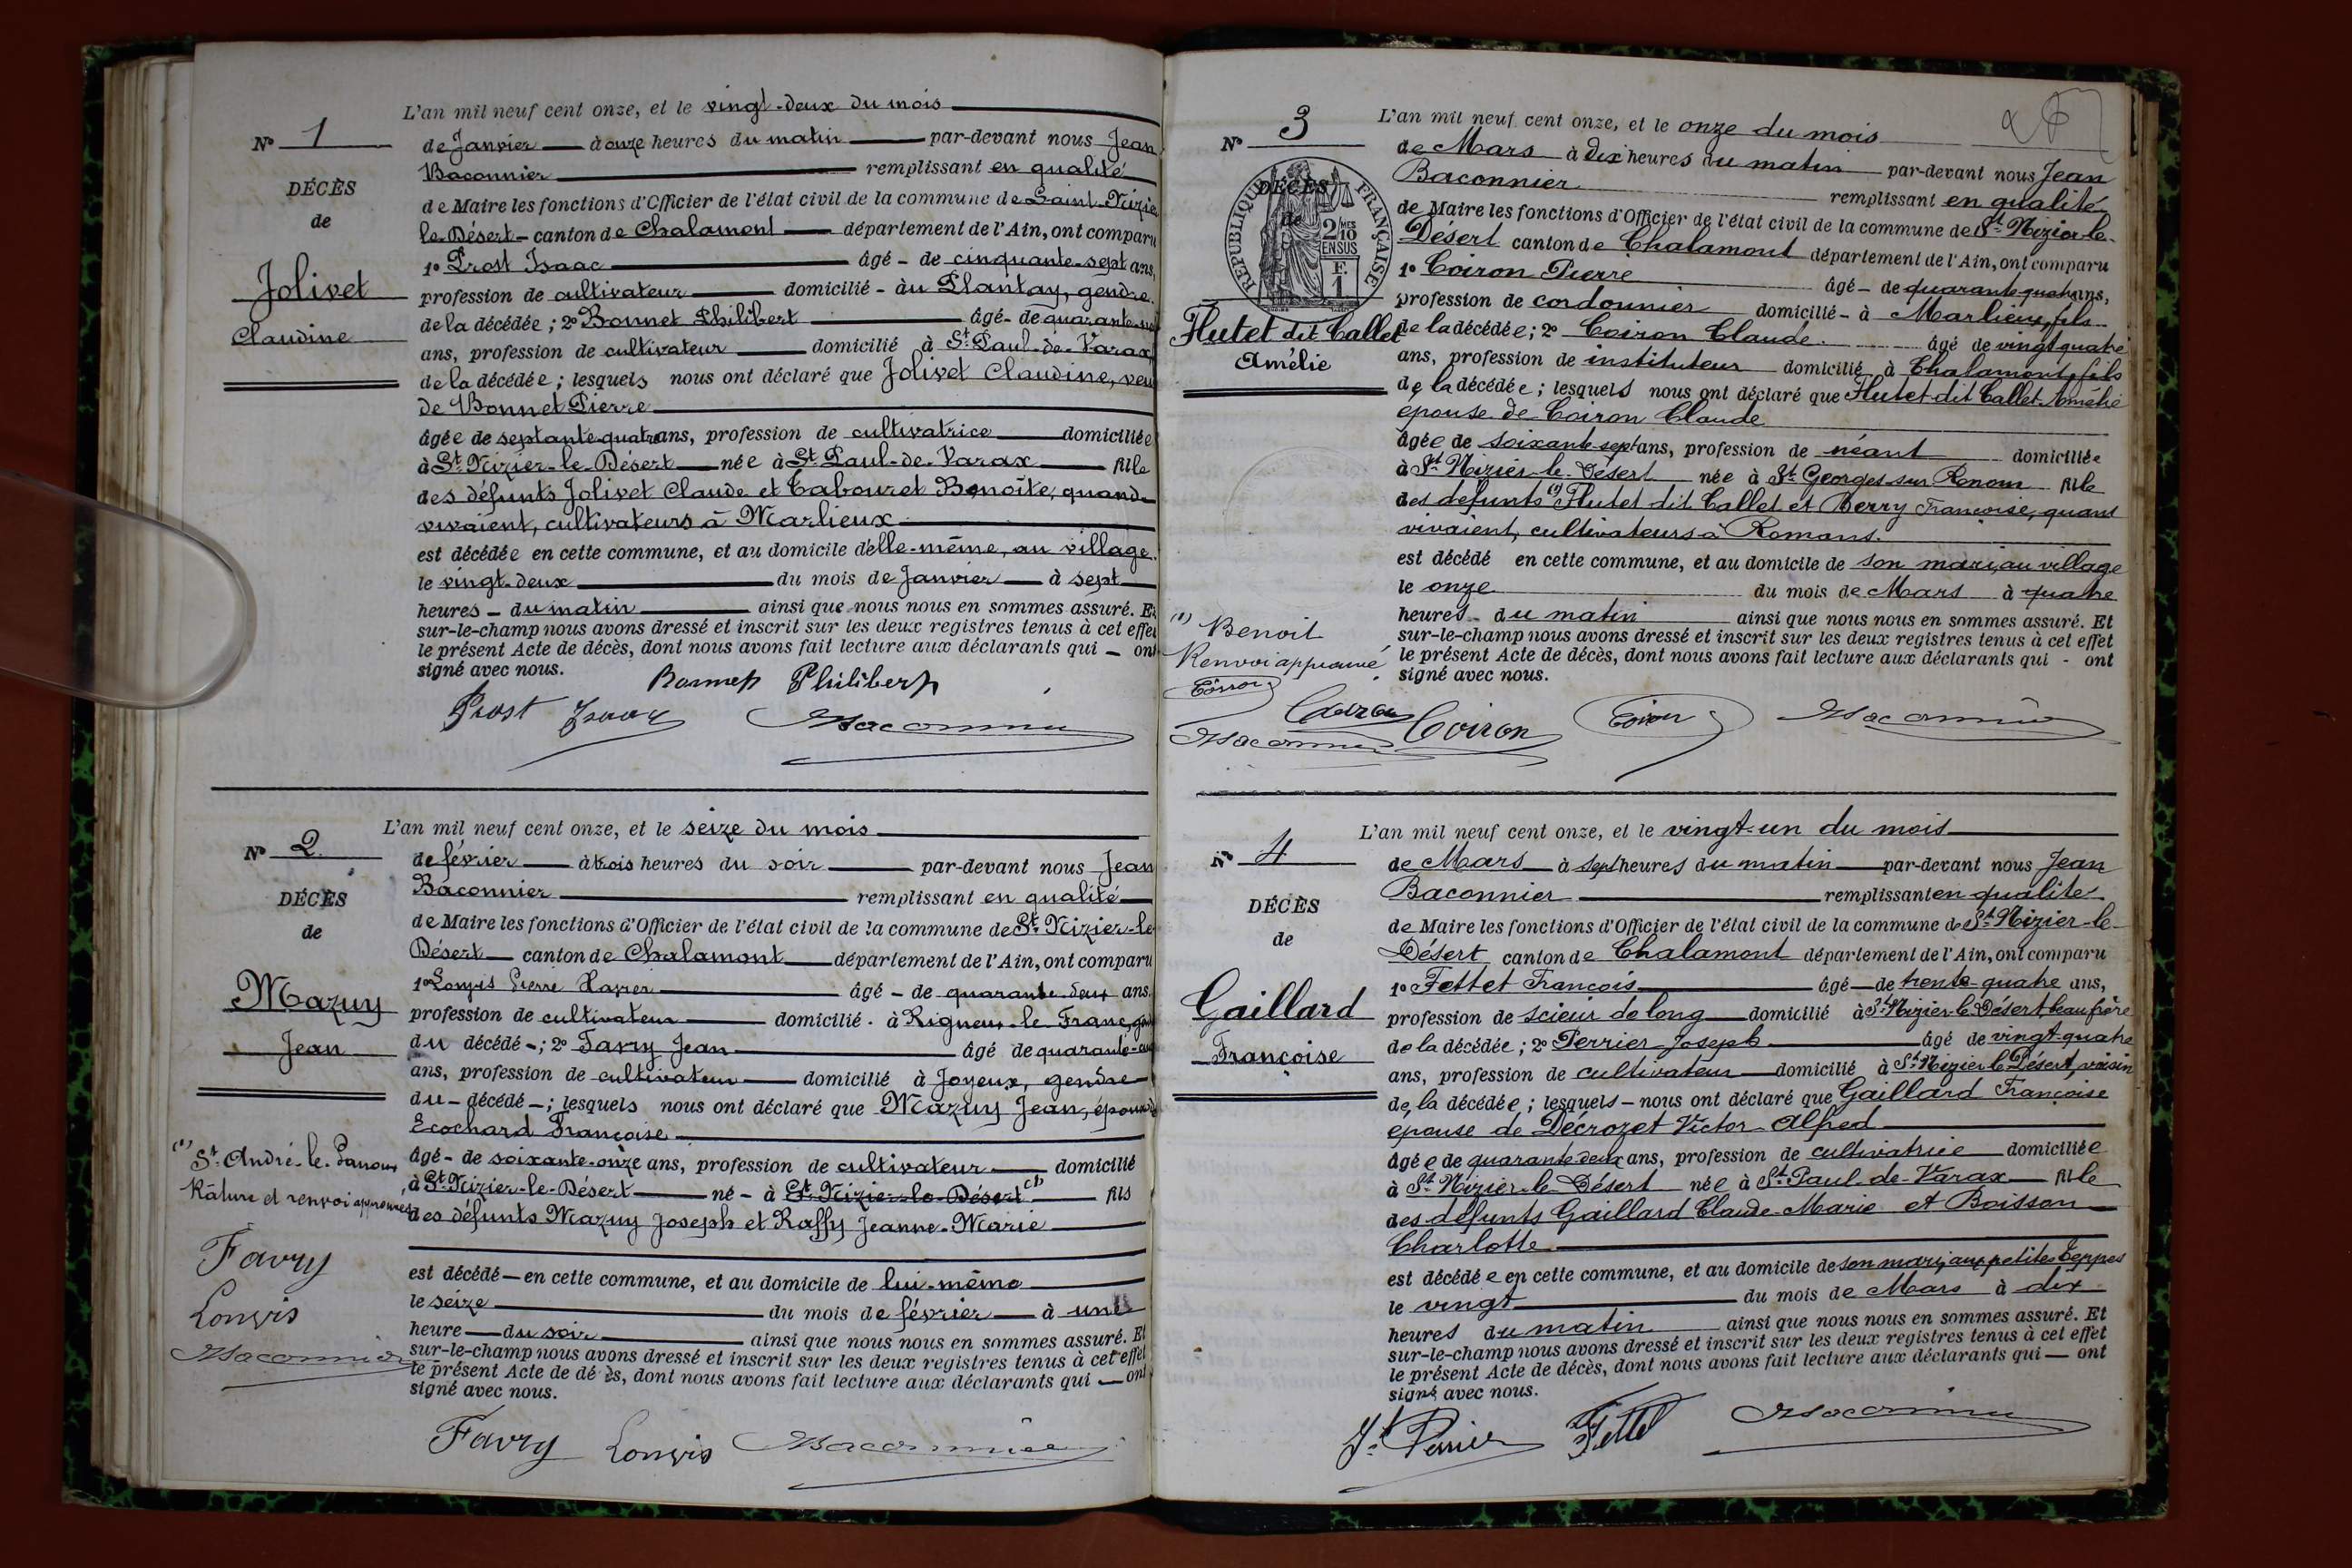 L'an mil neuf cent onze, et le vingt-deux du mois
N° 1
de Janvier à onze heures du matin par-devant nous Jean
Baconnier remplissant en qualité
DÉCÈS
de Maire les fonctions d'Officier de l'état civil de la commune de Saint-Nizier
de
le-Désert - canton de Chalamont département de l'Ain, ont comparu
1° Prost Isaac âgé - de cinquante-sept ans,
Jolivet
profession de cultivateur domicilié - au Plantay, gendre
de la décédée ; 2° Bonnet Philibert âgé - de quarante
Claudine
ans, profession de cultivateur domicilié à St Paul-de-Varax
de la décédée ; lesquels nous ont déclaré que Jolivet Claudine, veu
de Bonnet Pierre
âgée de septante-quatre ans, profession de cultivatrice domiciliée
à St Nizier-le-Désert née à St Paul-de-Varax fille
des défunts Jolivet Claude et Tabouret Benoîte, quand
vivaient, cultivateurs à Marlieux
est décédée en cette commune, et au domicile d'elle-même, au village
le vingt-deux du mois de Janvier à sept
heures - du matin ainsi que nous nous en sommes assuré. Et
sur-le-champ nous avons dressé et inscrit sur les deux registres tenus à cet effet
le présent Acte de décès, dont nous avons fait lecture aux déclarants qui - ont
signé avec nous.
Bonnet Philibert
Prost Isaac Baconnier
L'an mil neuf cent onze, et le seize du mois
N° 2
de février à trois heures du soir par-devant nous Jean
Baconnier remplissant en qualité
DÉCÈS
de Maire les fonctions d'Officier de l'état civil de la commune de St Nizier-le
de
Désert canton de Chalamont département de l'Ain, ont comparu
1° Pierre Xavier âgé - de quarante-deux ans
Mazuy
profession de cultivateur domicilié - à Rigneux-le-Franc,
du décédé - ; 2° Favry Jean âgé de quarante
Jean
ans, profession de cultivateur domicilié à Joyeux, gendre
du - décédé - ; lesquels nous ont déclaré que Mazuy Jean, époux de
Ecochard Françoise
âgé - de soixante-onze ans, profession de cultivateur domicilié
à St Nizier-le-Désert né - à St Nizier-le-Désert (1) fils
des défunts Mazuy Joseph et Raffy Jeanne-Marie
(1) St André-le-Panoux
Râture et renvoi approuvés
Favry
Baconnier
est décédé - en cette commune, et au domicile de lui-même
le seize du mois de février à une
heure du soir ainsi que nous nous en sommes assuré. Et
sur-le-champ nous avons dressé et inscrit sur les deux registres tenus à cet effet
le présent Acte de décès, dont nous avons fait lecture aux déclarants qui - ont
signé avec nous.
Favry Baconnier
L'an mil neuf cent onze, et le onze du mois
N° 3
de Mars à dix heures du matin par-devant nous Jean
Baconnier remplissant en qualité
DÉCÈS
de
RÉPUBLIQUE FRANÇAISE
2/10 MES EN SUS
F. 1
de Maire les fonctions d'Officier de l'état civil de la commune de St Nizier-le-
Désert canton de Chalamont département de l'Ain, ont comparu
1° Coiron Pierre âgé - de quarante-quatre ans,
profession de cordonnier domicilié - à Marlieux, fils
Flutet dit Callet
de la décédée ; 2° Coiron Claude âgé de vingt quatre
Amélie
ans, profession de instituteur domicilié à Chalamont, fils
de la décédée ; lesquels nous ont déclaré que Flutet dit Callet Amélie
épouse de Coiron Claude
âgée de soixante-sept ans, profession de néant domiciliée
à St Nizier-le-Désert née à St Georges-sur Renom fille
des défunts (1) Flutet dit Callet et Berry Françoise, quand
vivaient, cultivateurs à Romans.
est décédé en cette commune, et au domicile de son mari, au village
le onze du mois de Mars à quatre
heures du matin ainsi que nous nous en sommes assuré. Et
sur-le-champ nous avons dressé et inscrit sur les deux registres tenus à cet effet
le présent Acte de décès, dont nous avons fait lecture aux déclarants qui - ont
signé avec nous.
(1) Benoit
Renvoi approuvé
Coiron
Coiron Coiron Coiron Baconnier
Baconnier
L'an mil neuf cent onze, et le vingt-un du mois
N° 4
de Mars à sept heures du matin par-devant nous Jean
Baconnier remplissant en qualité
DÉCÈS
de Maire les fonctions d'Officier de l'état civil de la commune de St Nizier-le-
de
Désert canton de Chalamont département de l'Ain, ont comparu
1° Fettet François âgé de trente-quatre ans,
Gaillard
profession de scieur de long domicilié à St Nizier-le-Désert, beau frère
de la décédée ; 2° Perrier Joseph âgé de vingt-quatre
Françoise
ans, profession de cultivateur domicilié à St Nizier-le-Désert, voisin
de la décédée ; lesquels - nous ont déclaré que Gaillard Françoise
épouse de Décrozet Victor-Alfred
âgée de quarante deux ans, profession de cultivatrice domiciliée
à St Nizier-le-Désert née à St Paul-de-Varax fille
des défunts Gaillard Claude-Marie et Boisson
Charlotte
est décédée en cette commune, et au domicile de son mari, aux petites Teppes
le vingt du mois de Mars à dix
heures du matin ainsi que nous nous en sommes assuré. Et
sur-le-champ nous avons dressé et inscrit sur les deux registres tenus à cet effet
le présent Acte de décès, dont nous avons fait lecture aux déclarants qui - ont
signé avec nous.
Jh Perrier Fettet Baconnier